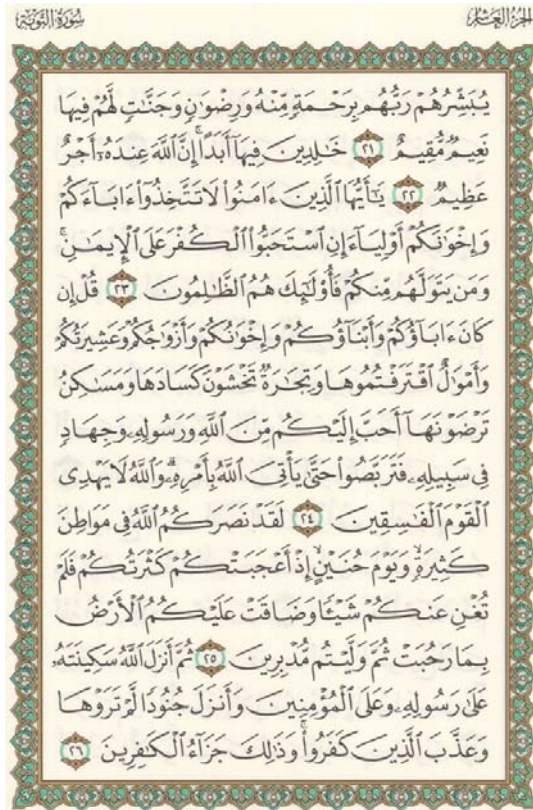 الجزء العاشر
سورة التوبة
يُبَشِّرُهُمْ رَبُّهُم بِرَحْمَةٍ مِّنْهُ وَرِضْوَٰنٍ وَجَنَّٰتٍ لَّهُمْ فِيهَا
نَعِيمٌ مُّقِيمٌ ٢١ خَٰلِدِينَ فِيهَآ أَبَدًا ۚ إِنَّ ٱللَّهَ عِندَهُۥٓ أَجْرٌ
عَظِيمٌ ٢٢ يَٰٓأَيُّهَا ٱلَّذِينَ ءَامَنُوا۟ لَا تَتَّخِذُوٓا۟ ءَابَآءَكُمْ
وَإِخْوَٰنَكُمْ أَوْلِيَآءَ إِنِ ٱسْتَحَبُّوا۟ ٱلْكُفْرَ عَلَى ٱلْإِيمَٰنِ ۚ
وَمَن يَتَوَلَّهُم مِّنكُمْ فَأُو۟لَٰٓئِكَ هُمُ ٱلظَّٰلِمُونَ ٢٣ قُلْ إِن
كَانَ ءَابَآؤُكُمْ وَأَبْنَآؤُكُمْ وَإِخْوَٰنُكُمْ وَأَزْوَٰجُكُمْ وَعَشِيرَتُكُمْ
وَأَمْوَٰلٌ ٱقْتَرَفْتُمُوهَا وَتِجَٰرَةٌ تَخْشَوْنَ كَسَادَهَا وَمَسَٰكِنُ
تَرْضَوْنَهَآ أَحَبَّ إِلَيْكُم مِّنَ ٱللَّهِ وَرَسُولِهِۦ وَجِهَادٍ
فِى سَبِيلِهِۦ فَتَرَبَّصُوا۟ حَتَّىٰ يَأْتِىَ ٱللَّهُ بِأَمْرِهِۦ ۗ وَٱللَّهُ لَا يَهْدِى
ٱلْقَوْمَ ٱلْفَٰسِقِينَ ٢٤ لَقَدْ نَصَرَكُمُ ٱللَّهُ فِى مَوَاطِنَ
كَثِيرَةٍ ۙ وَيَوْمَ حُنَيْنٍ ۙ إِذْ أَعْجَبَتْكُمْ كَثْرَتُكُمْ فَلَمْ
تُغْنِ عَنكُمْ شَيْـًٔا وَضَاقَتْ عَلَيْكُمُ ٱلْأَرْضُ
بِمَا رَحُبَتْ ثُمَّ وَلَّيْتُم مُّدْبِرِينَ ٢٥ ثُمَّ أَنزَلَ ٱللَّهُ سَكِينَتَهُۥ
عَلَىٰ رَسُولِهِۦ وَعَلَى ٱلْمُؤْمِنِينَ وَأَنزَلَ جُنُودًا لَّمْ تَرَوْهَا
وَعَذَّبَ ٱلَّذِينَ كَفَرُوا۟ ۚ وَذَٰلِكَ جَزَآءُ ٱلْكَٰفِرِينَ ٢٦